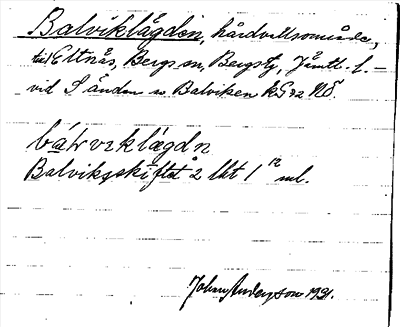 Balviklägden, hårdvallsområde,
till Eltnås, Bergs sn, Bergs tg, Jämtl. l. –
vid S änden av Balviken kG32 NÖ.
Balvikskiftet å 2 lht 1 ml.
Johnny Andersson 1931.